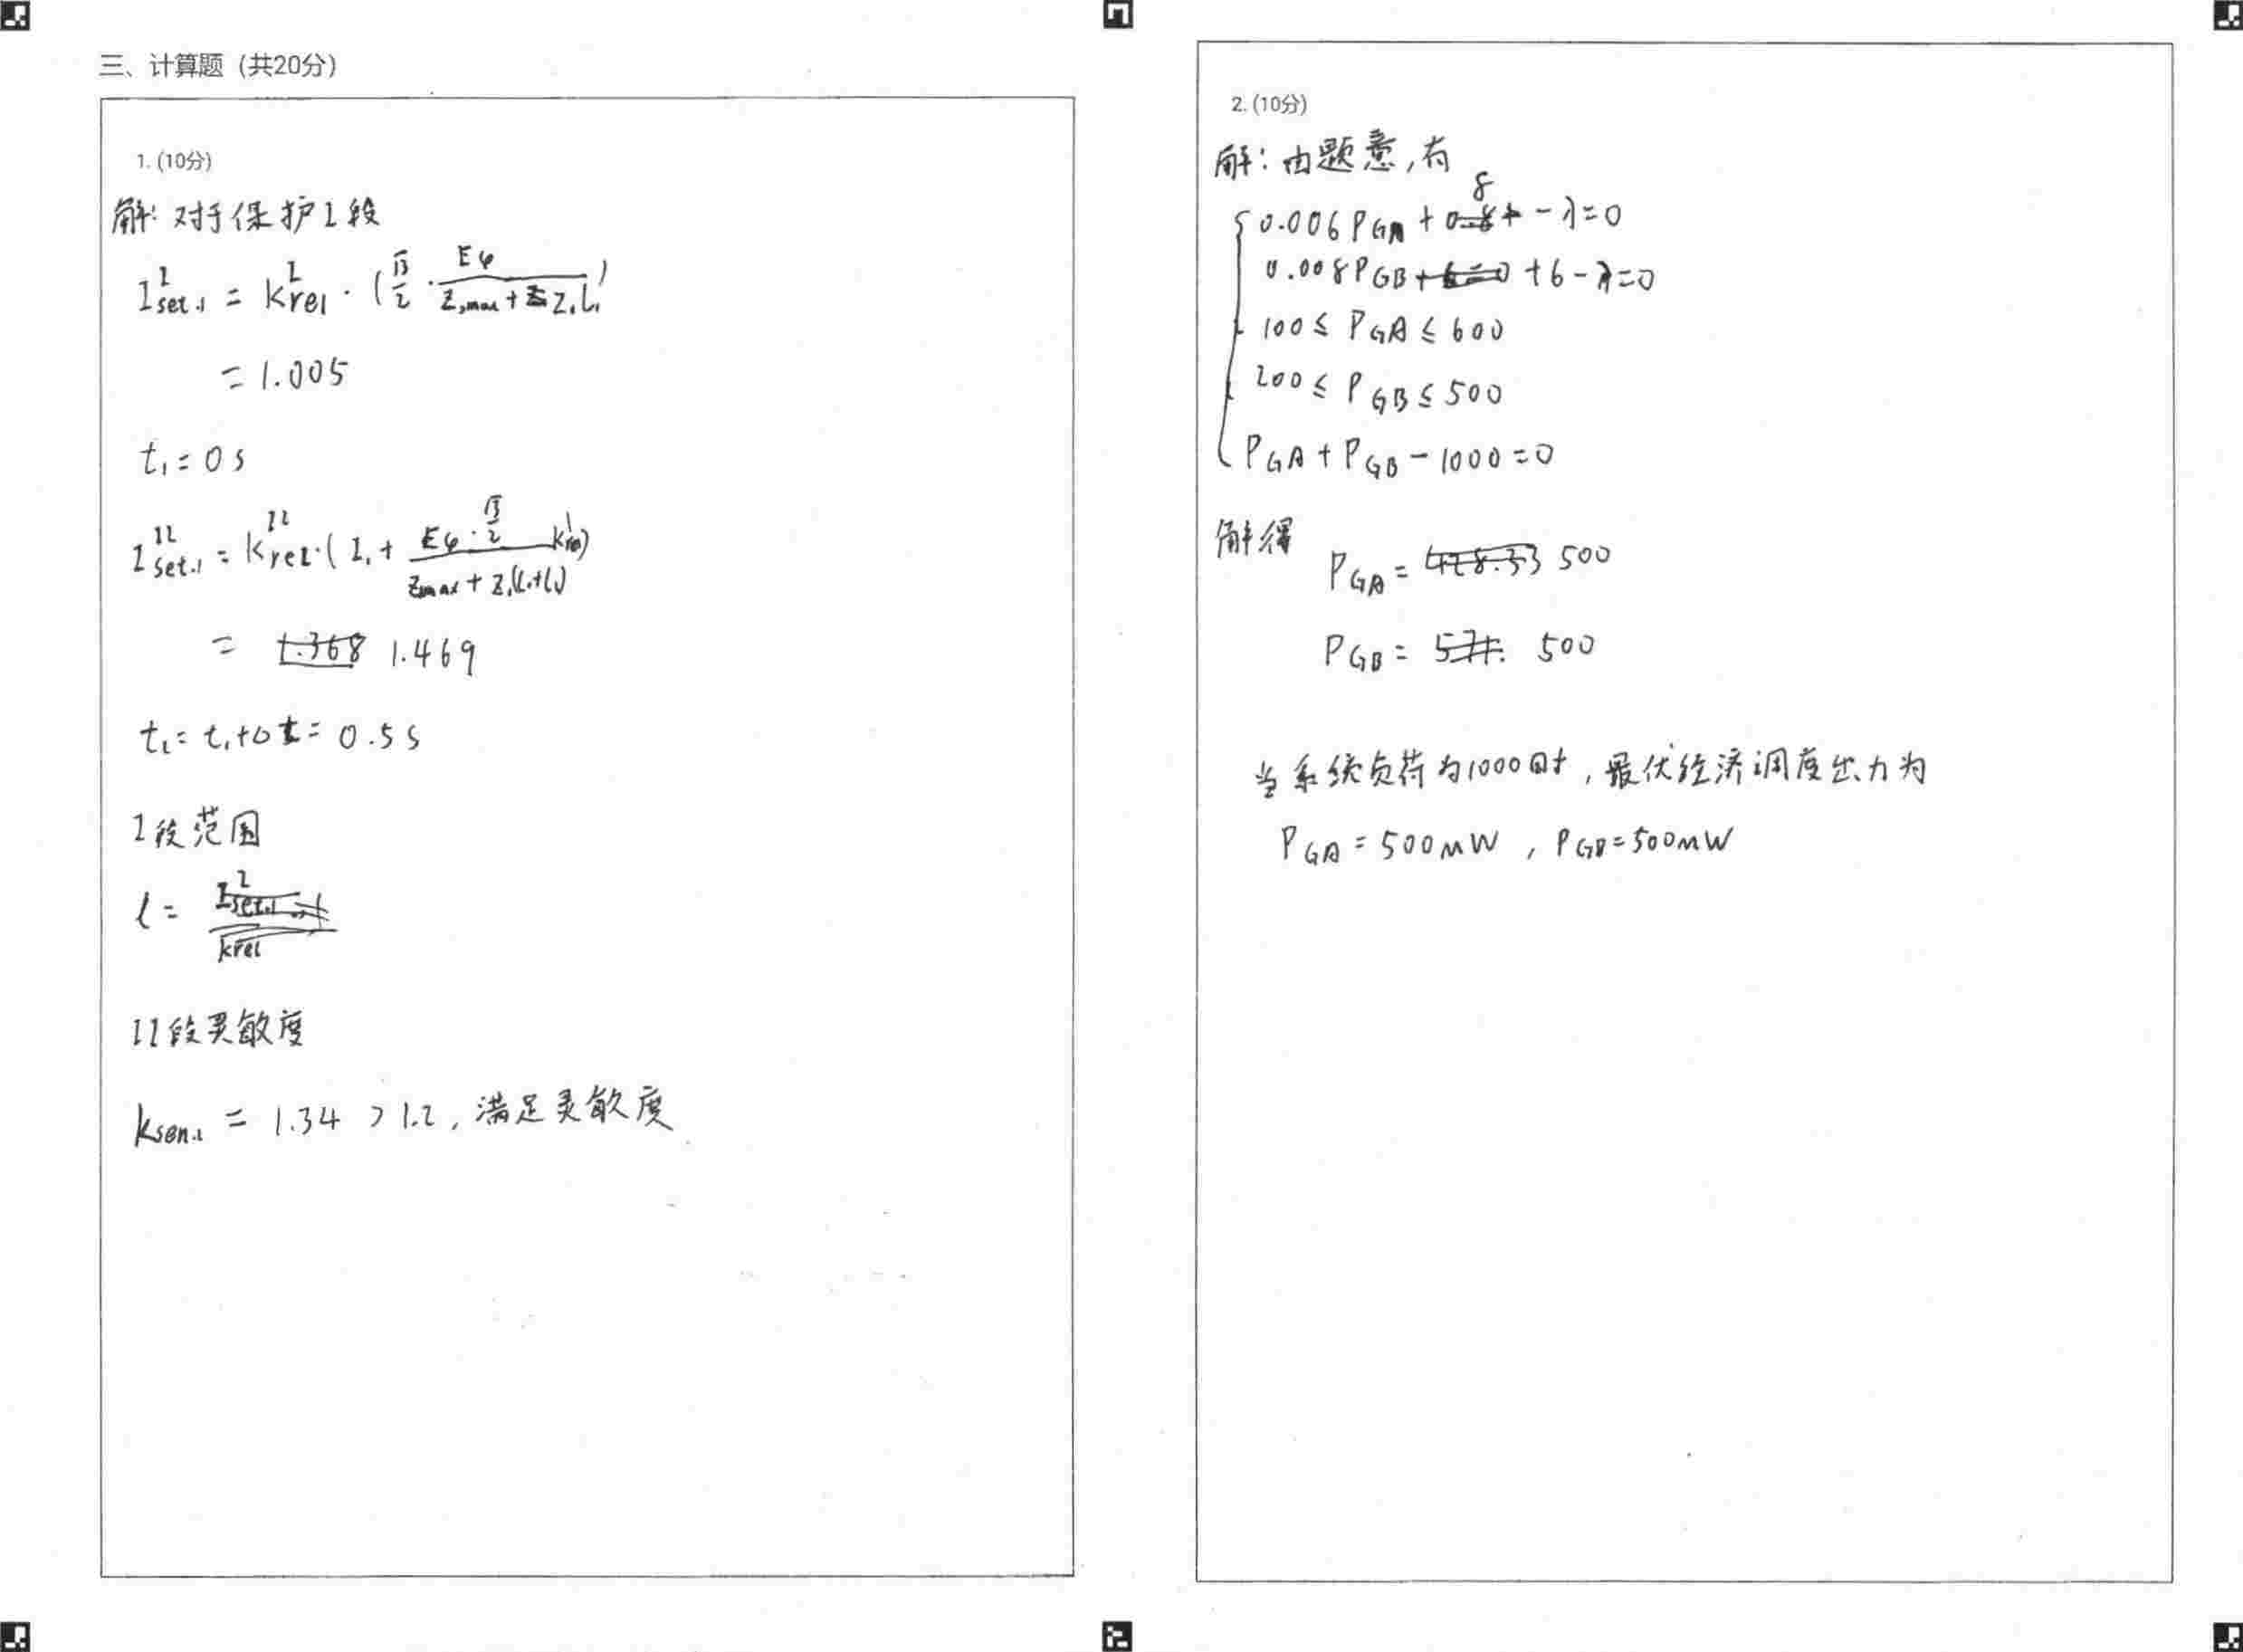 三、计算题 (共20分)
1. (10分)
解: 对于保护I段
I^I_set.1 = K^I_rel · (√3/2 · Eφ/(Z_smax + Z_1L_1))
= 1.005
t_1 = 0s
I^II_set.1 = K^II_rel · (I_1 + (Eφ · √3/2 K^I_rel)/(Z_smax + Z_1(L_1+L_2)))
= 1.469
t_2 = t_1 + Δt = 0.5s
I段范围
l =
II段灵敏度
K_sen.1 = 1.34 > 1.2, 满足灵敏度
2. (10分)
解: 由题意, 有
0.006 P_GA + 8 - λ = 0
0.008 P_GB + 6 - λ = 0
100 ≤ P_GA ≤ 600
200 ≤ P_GB ≤ 500
P_GA + P_GB - 1000 = 0
解得
P_GA = 500
P_GB = 500
当系统负荷为1000时, 最优经济调度出力为
P_GA = 500MW, P_GB = 500MW